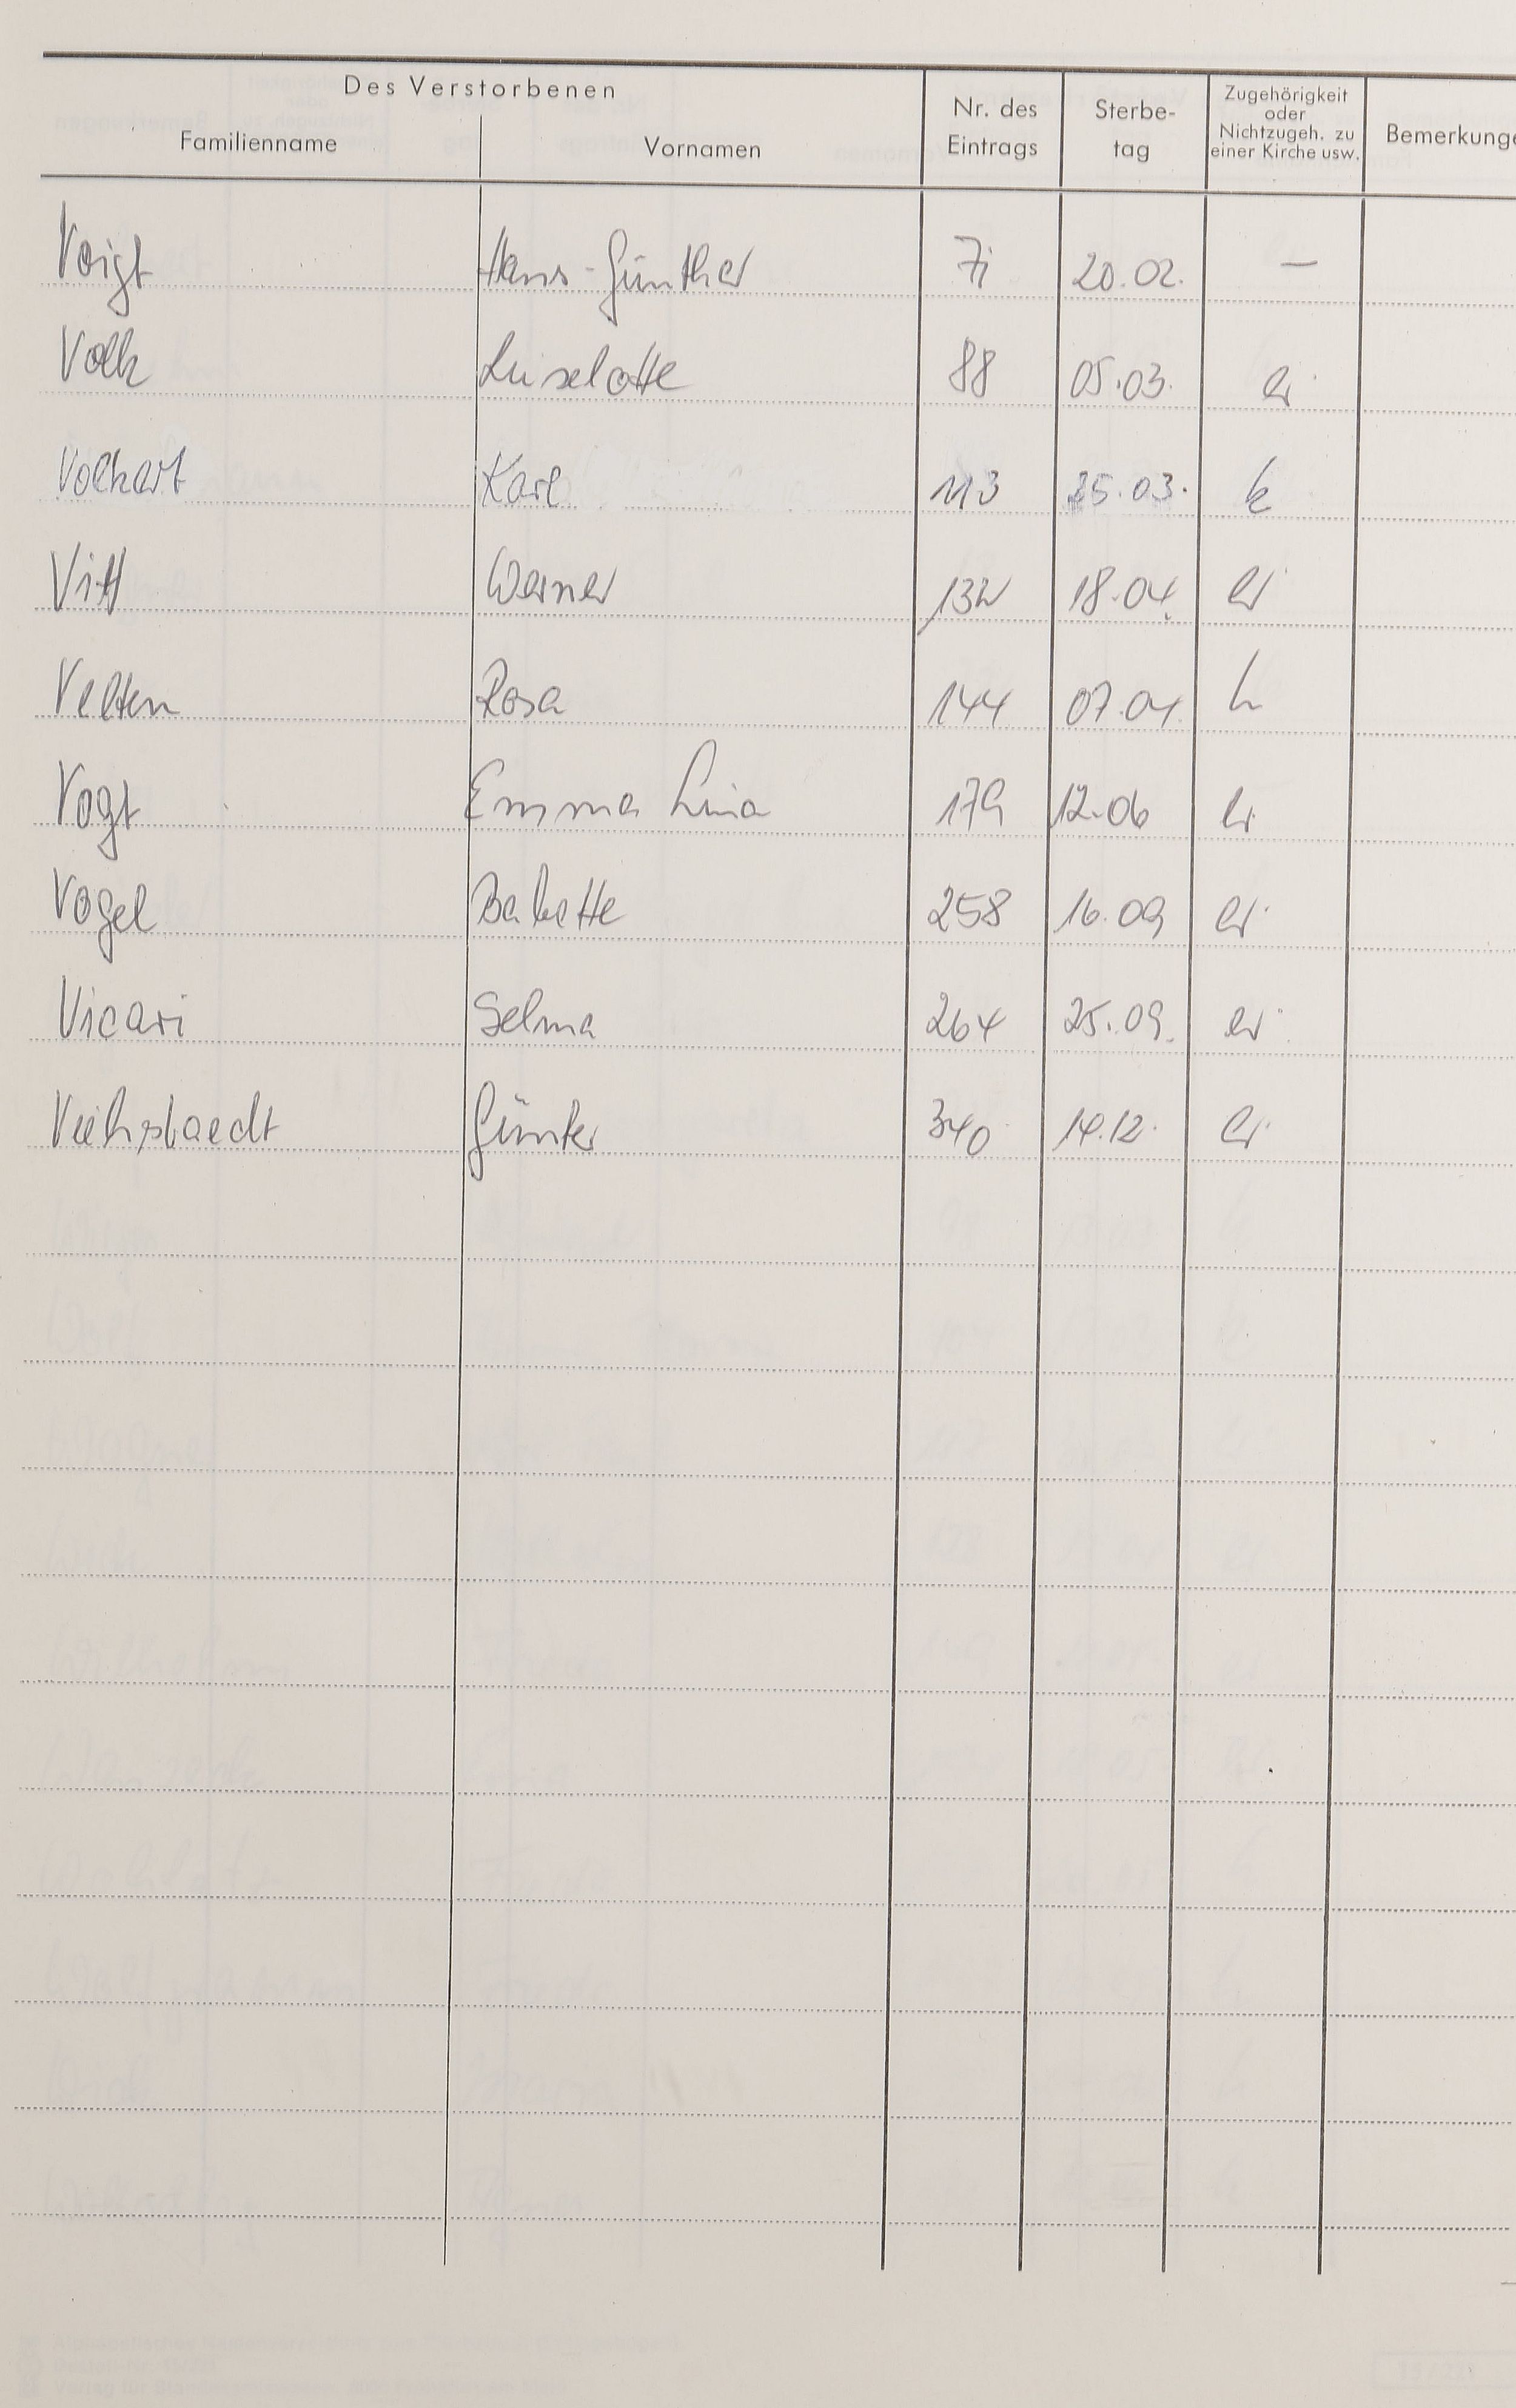 Des Verstorbenen
Familienname Vornamen Nr. des Eintrags Sterbe-tag Zugehörigkeit oder Nichtzugeh. zu einer Kirche usw. Bemerkunge
Voigt Hans-Günther 71 20.02. —
Volk Liselotte 88 05.03. ev.
Volkert Karl 113 25.03. k
Vitt Werner 132 18.04. ev.
Velten Rosa 144 07.04.
Vogt Emma Lina 179 12.06 ev.
Vogel Babette 258 16.09 ev.
Vicari Selma 264 25.09. ev.
Günter 340 14.12. ev.